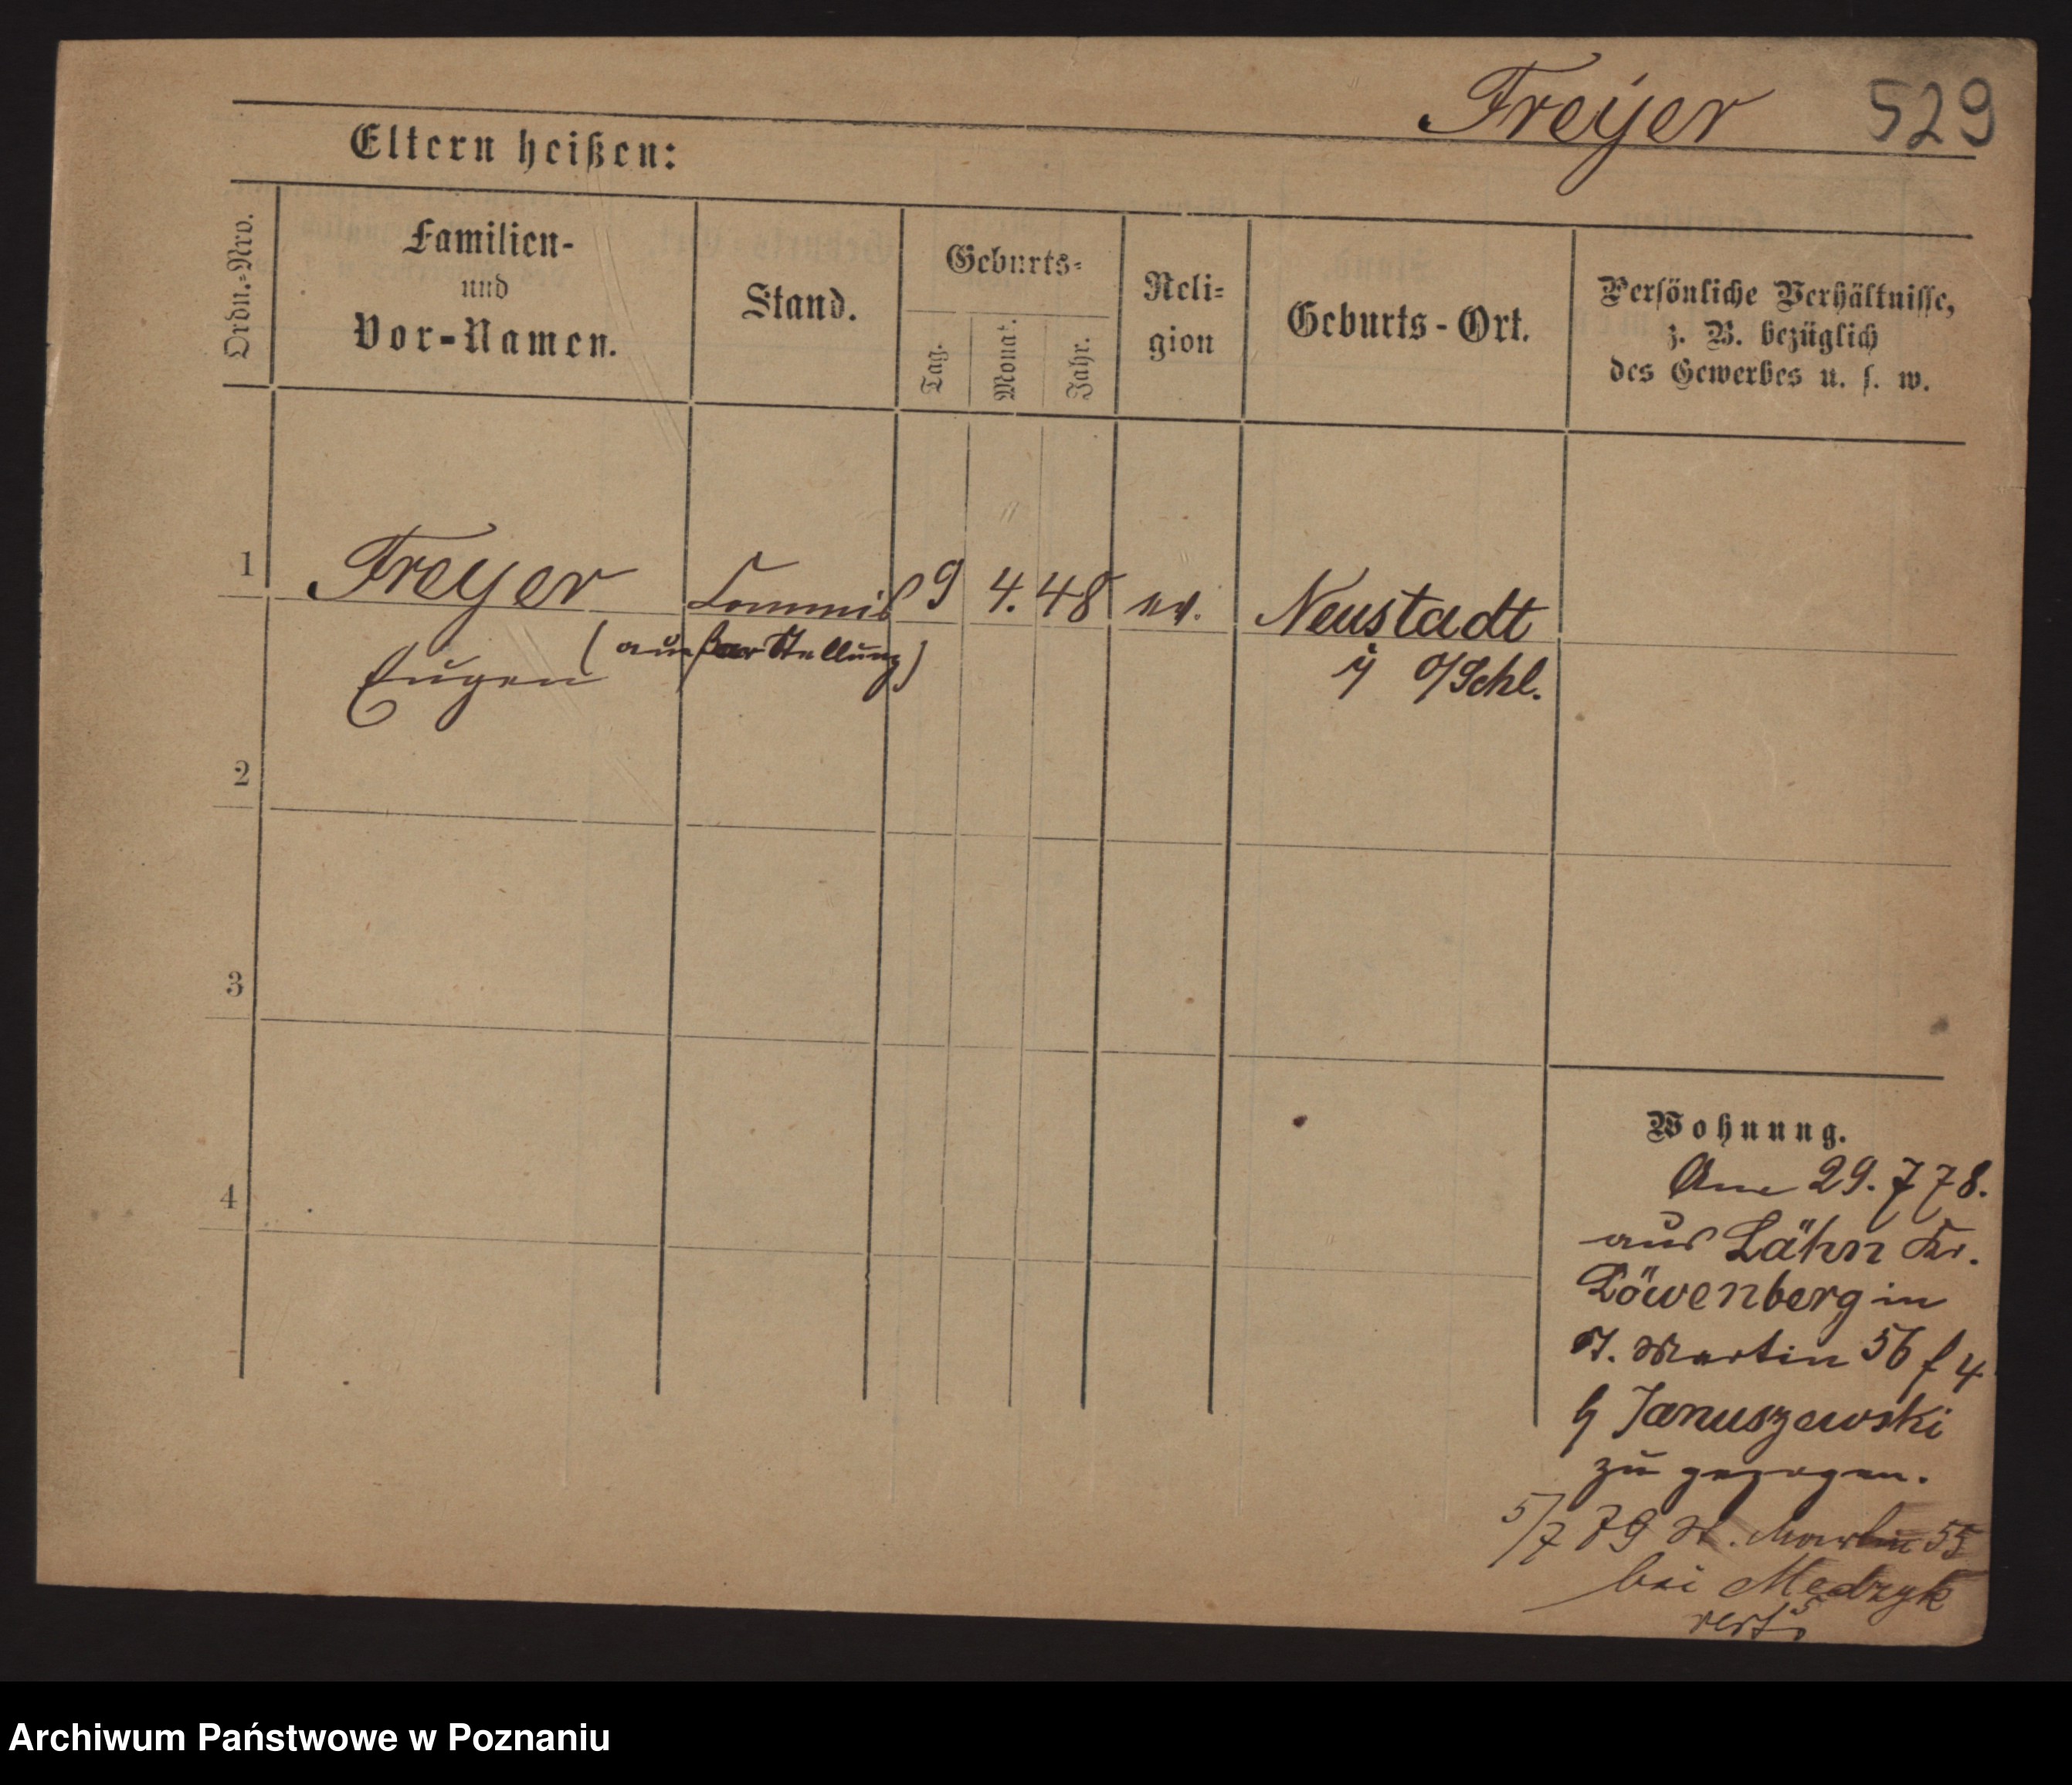 Freÿer 529
Eltern heißen:
Ordn.-Nro.
Familien-
und
Vor-Namen.
Stand.
Geburts-
Tag.
Monat.
Jahr.
Reli-
gion
Geburts-Ort.
Persönliche Verhältnisse,
z. B. bezüglich
des Gewerbes u. s. w.
1 Freyer Commis 9 4. 48 ev. Neustadt
(außer Stellung)
Eugen
i/ O/Schl.
2
3
4
Wohnung.
Am 29. 7 78.
aus Lähn Kr.
Löwenberg in
St. Martin 56 f 4
b/ Januszewski
zu gezogen.
5/7 79 St. Martin 55
bei Medzyk
Archiwum Państwowe w Poznaniu